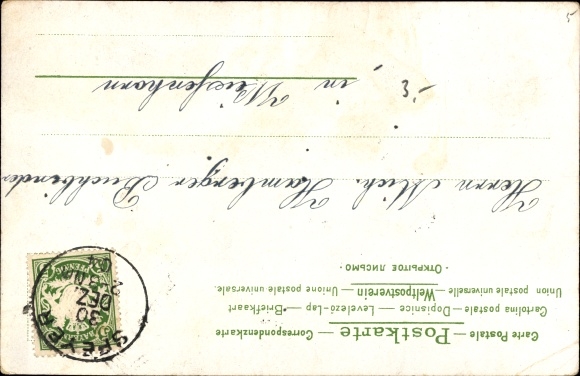 Carte Postale — Postkarte — Correspondenzkarte
Cartolina postale — Dopisnice — Levelező-Lap — Briefkaart
Union postale universelle — Weltpostverein — Unione postale universale.
· ОТКРЫТОЕ ПИСЬМО ·
SPEYER
30
DEZ
Herrn Mich. Hamberger Buchbinder
in Weißenhorn
3
5